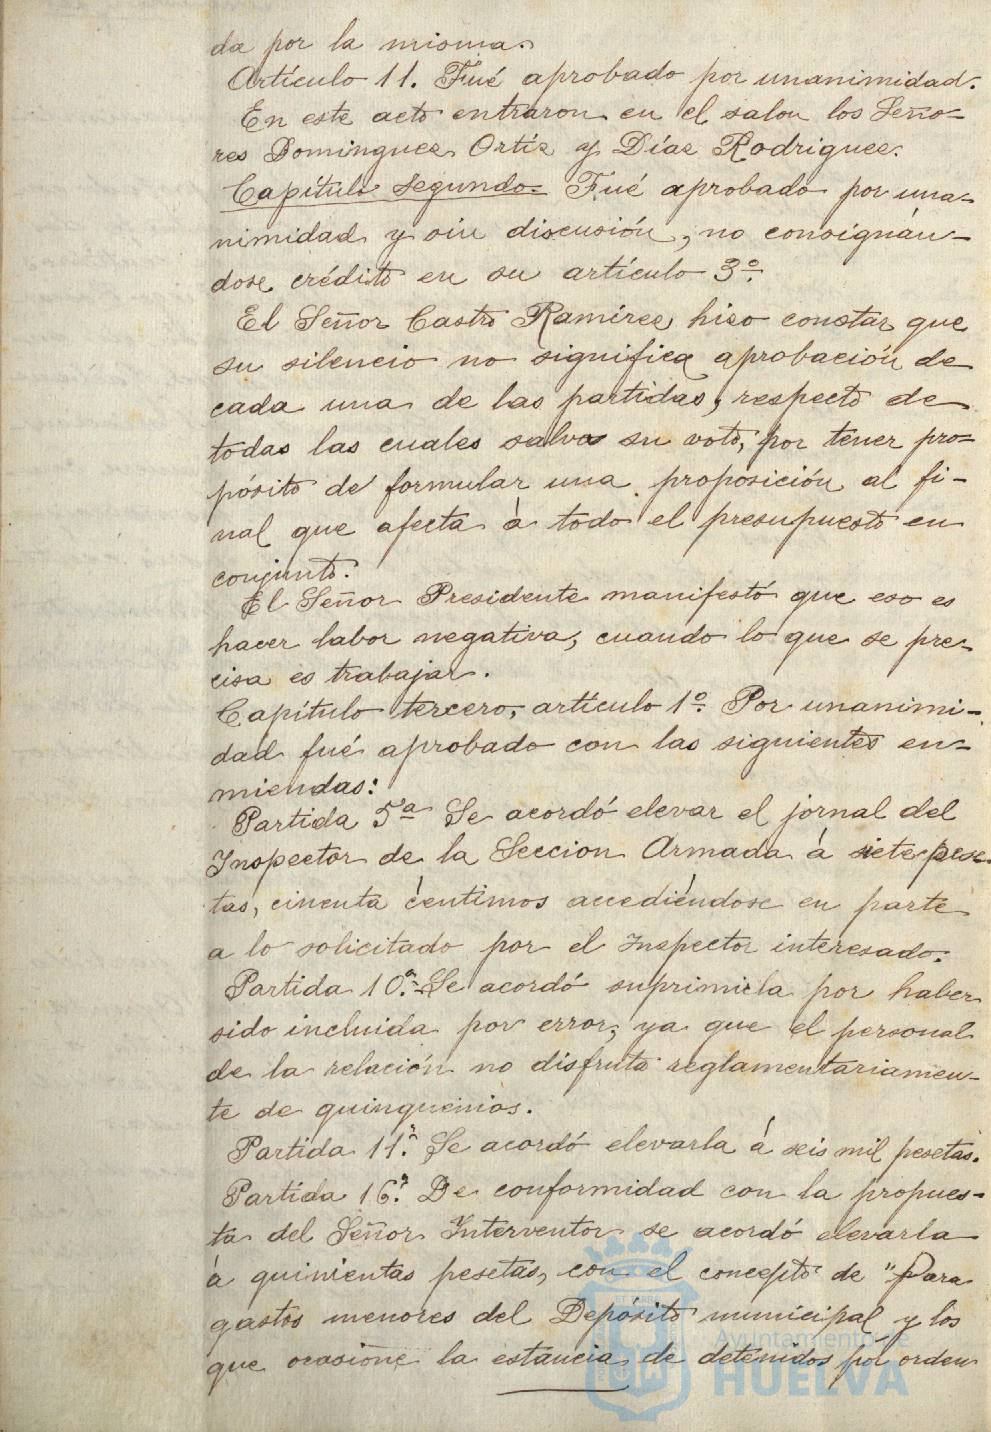 da por la misma.
Artículo 11. Fué aprobado por unanimidad.
En este acto entraron en el salon los Seño-
res Dominguez Ortíz y Díaz Rodriguez.
Capítulo segundo. Fué aprobado por una-
nimidad y sin discusión, no consignán-
dose crédito en su artículo 3º.
El Señor Castro Ramírez hizo constar que
su silencio no significa aprobación de
cada una de las partidas, respecto de
todas las cuales salva su voto, por tener pro-
pósito de formular una proposición al fi-
nal que afecta á todo el presupuesto en
conjunto.
El Señor Presidente manifestó que eso es
hacer labor negativa, cuando lo que se pre-
cisa es trabajar.
Capítulo tercero, artículo 1º. Por unanimi-
dad fué aprobado con las siguientes en-
miendas:
Partida 5ª Se acordó elevar el jornal del
Inspector de la Seccion Armada á siete pese-
tas, cincuenta céntimos accediéndose en parte
a lo solicitado por el Inspector interesado.
Partida 10ª. Se acordó suprimirla por haber
sido incluida por error, ya que el personal
de la relación no disfruta reglamentariamen-
te de quinquenios.
Partida 11ª. Se acordó elevarla á seis mil pesetas.
Partida 16ª. De conformidad con la propues-
ta del Señor Interventor se acordó elevarla
á quinientas pesetas, con el concepto de "Para
gastos menores del Depósito municipal y los
que ocasione la estancia de detenidos por orden
Ayuntamiento de
HUELVA